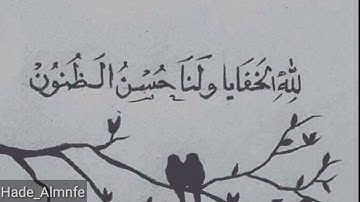 لِلّٰهِ الخَفَايا وَلَنَا حُسْنُ الَظُنُونْ
Hade_Almnfe